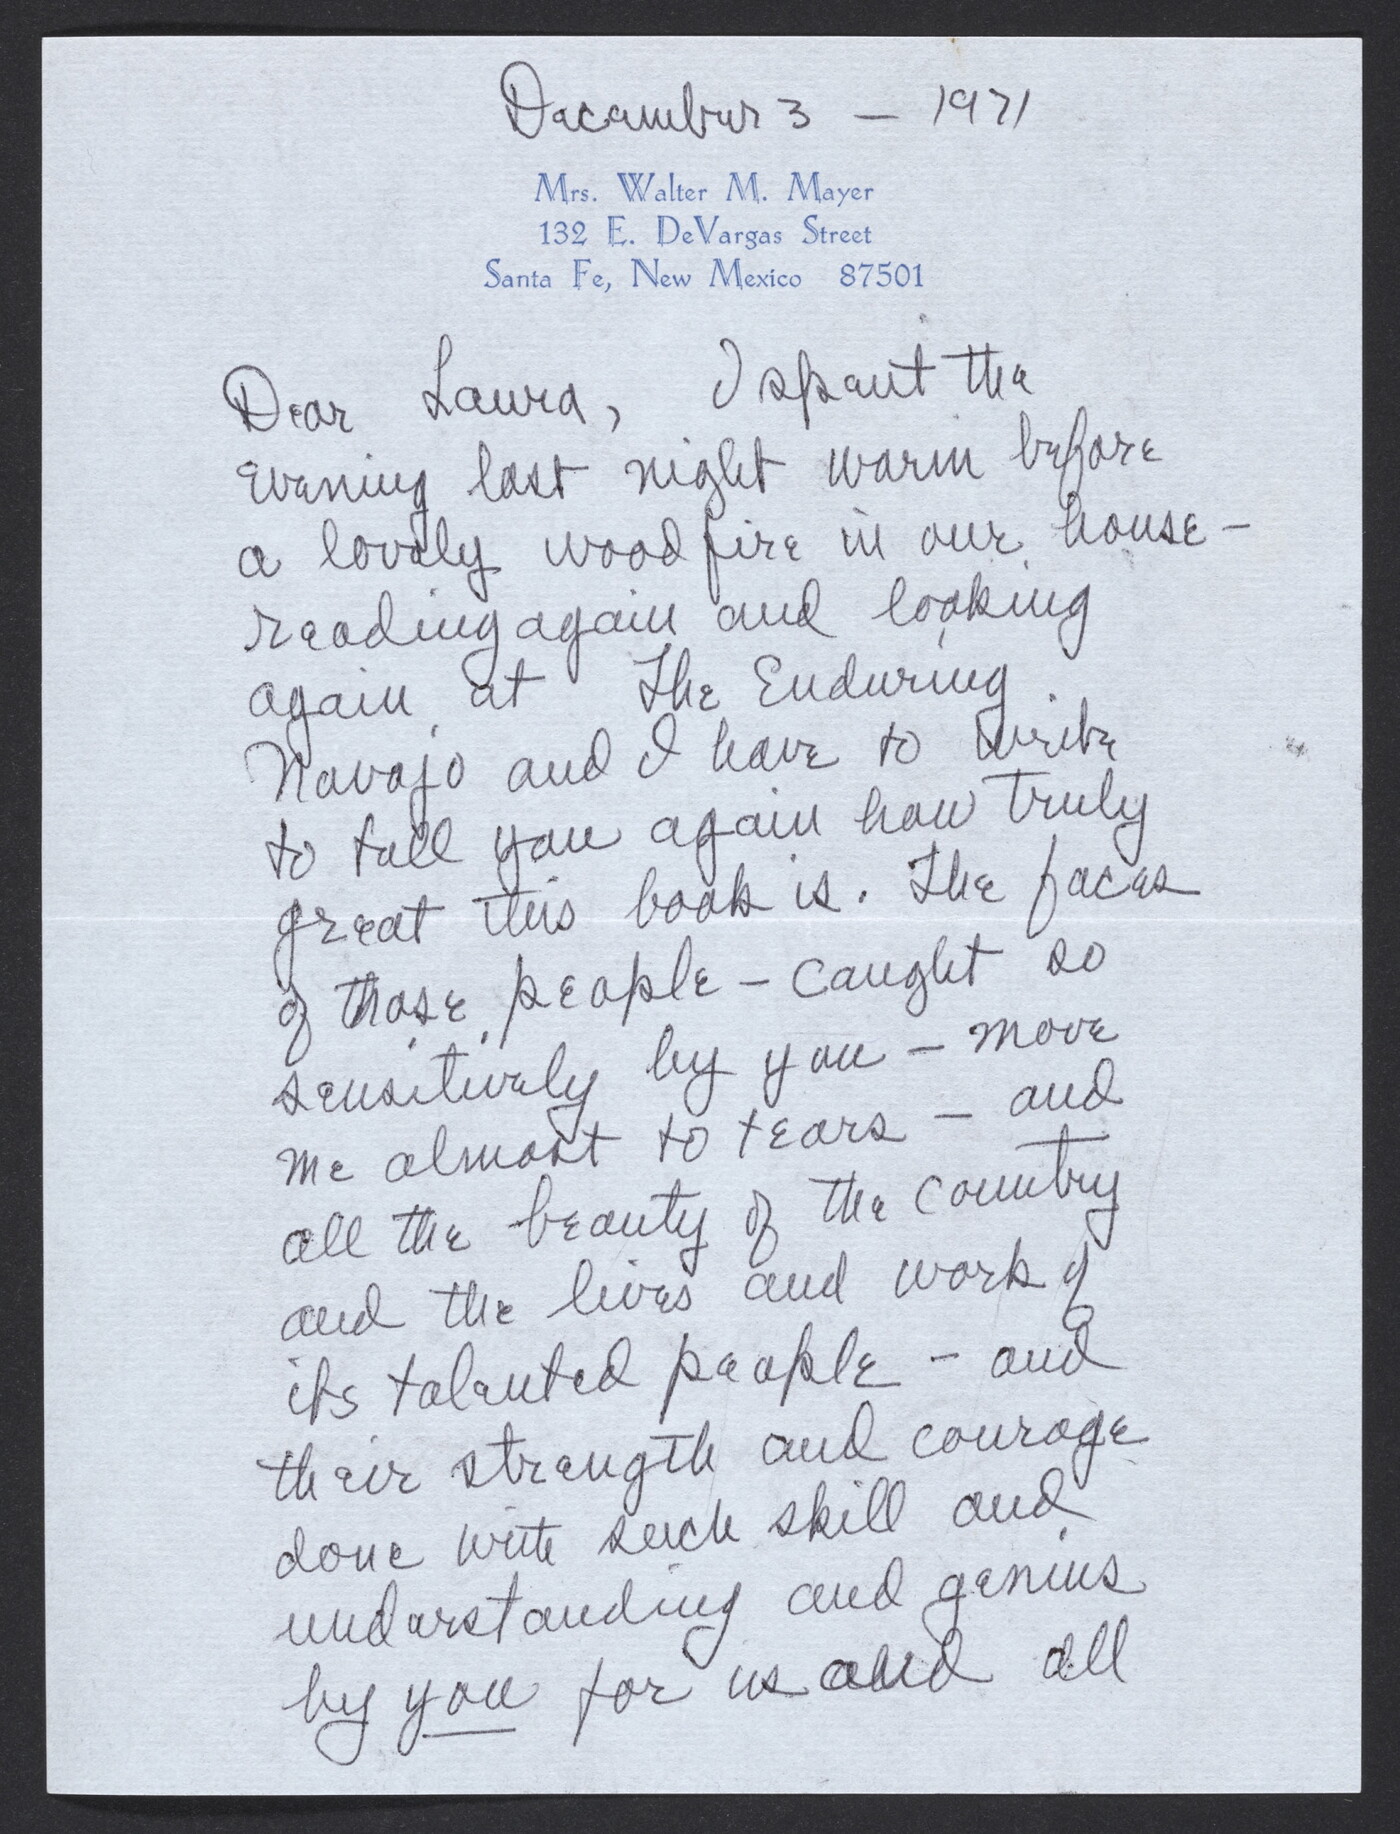 December 3 — 1971
Mrs. Walter M. Mayer
132 E. DeVargas Street
Santa Fe, New Mexico 87501
Dear Laura, I spent the
evening last night warm before
a lovely wood fire in our house —
reading again and looking
again at The Enduring
Navajo and I have to write
to tell you again how truly
great this book is. The faces
of those people — caught so
sensitively by you — move
me almost to tears — and
all the beauty of the country
and the lives and work of
its talented people — and
their strength and courage
done with such skill and
understanding and genius
by you for us and all